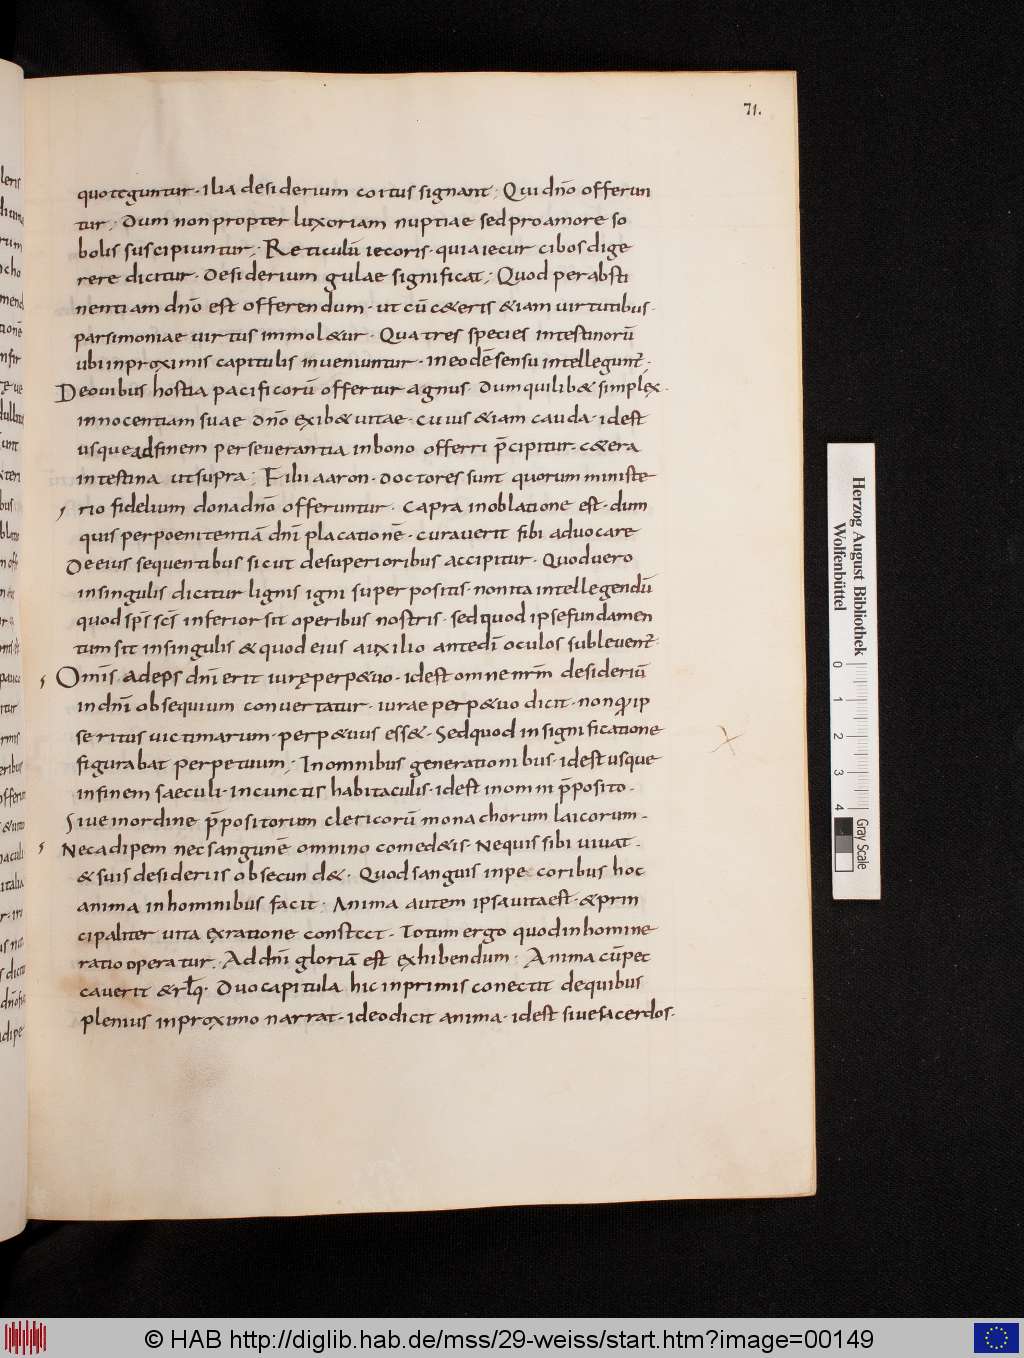 71.
quo teguntur · Ilia desiderium coitus signant ; Qui dño offerun
tur ; Dum non propter luxoriam nuptiae sed pro amore so
bolis suscipiuntur ; Reticulū iecoris · quia iecur cibos dige
rere dicitur · Desiderium gulae significat ; Quod per absti
nentiam dño est offerendum · ut cū c&eris &iam uirtutibus ·
parsimoniae uirtus immol&ur · Qua tres species intestinorū
ubi in proximis capitulis inueniuntur · in eodē sensu intellegunt̄ ·
De ouibus hostia pacificorū offertur agnus Dum quilib& simplex ·
innocentiam suae dño exib& uitae · cuius &iam cauda · id est
usque ad finem perseuerantia in bono offerri p̄cipitur · c&era
intestina ut supra ; Filii aaron · doctores sunt quorum ministe
rio fidelium dona dño offeruntur · Capra in oblatione est · dum
quis per poenitentiā dñi placationē · curauerit sibi aduocare
De eius sequentibus sicut de superioribus accipitur · Quod uero
in singulis dicitur lignis igni super positis · non ita intellegendū
quod sp̄s sc̄s inferior sit operibus nostris · sed quod ipse fundamen
tum sit in singulis & quod eius auxilio ante dēi oculos subleuent̄ ·
Om̄is adeps dñi erit iurę perp&uo · id est omne nr̄m desideriū
in dñi obsequium conuertatur · iurae perp&uo dicit · non q̄ ip
se ritus uictimarum · perp&uus ess& · Sed quod in significatione
figurabat perpetuum ; In omnibus generationibus · id est usque
in finem saeculi · in cunctis habitaculis · id est in omni p̄posito ·
Siue in ordine p̄positorum clericorū monachorum laicorum ·
Nec adipem nec sanguinē omnino comed&is · Ne quis sibi uiuat ·
& suis desideriis obsecund& · Quod sanguis in pecoribus hoc
anima in hominibus facit · Anima autem ipsa uita est · & prin
cipaliter uita ex ratione constat · Totum ergo quod in homine
ratio operatur · Ad dñi gloriā est exhibendum · Anima cū pec
cauerit & rłq · Duo capitula hic in primis conectit de quibus
plenius in proximo narrat · ideo dicit anima · id est siue sacerdos ·
Herzog August Bibliothek
Wolfenbüttel
0 1 2 3 4
Gray Scale
© HAB http://diglib.hab.de/mss/29-weiss/start.htm?image=00149